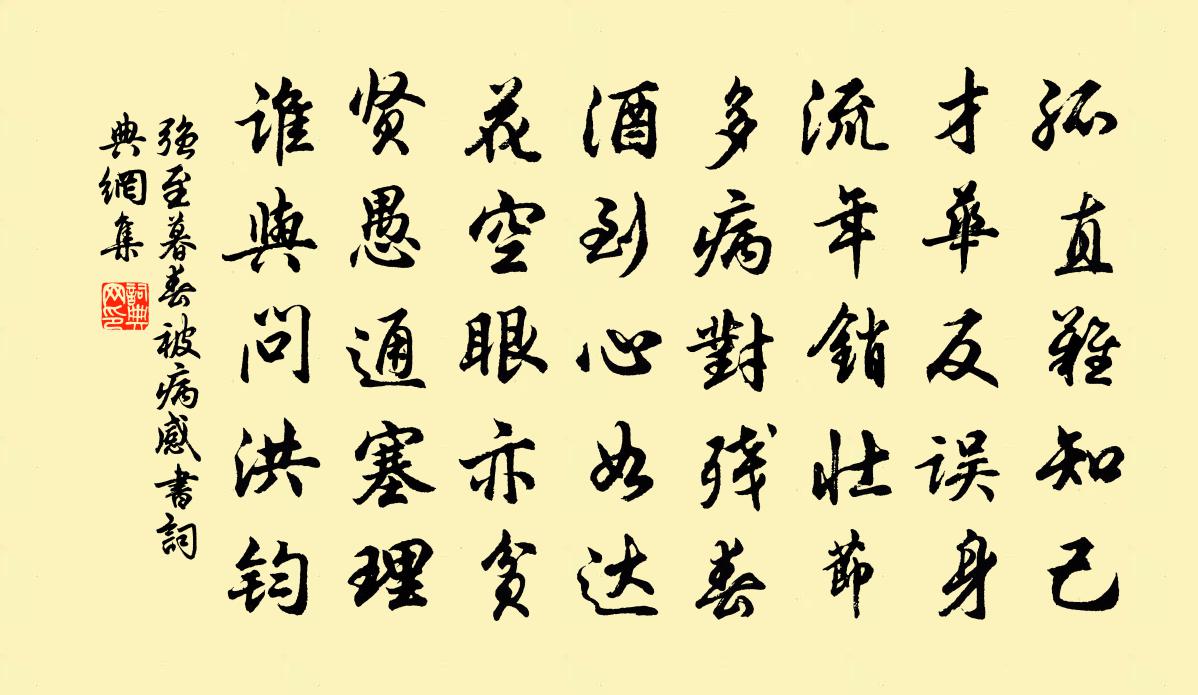 孤直難知己
才華反误身
流年銷壮節
多病對残春
酒到心如达
花空眼亦貧
贤愚通塞理
谁與問洪钧
强至暮春被病感書詞
典網集
詞典
网印